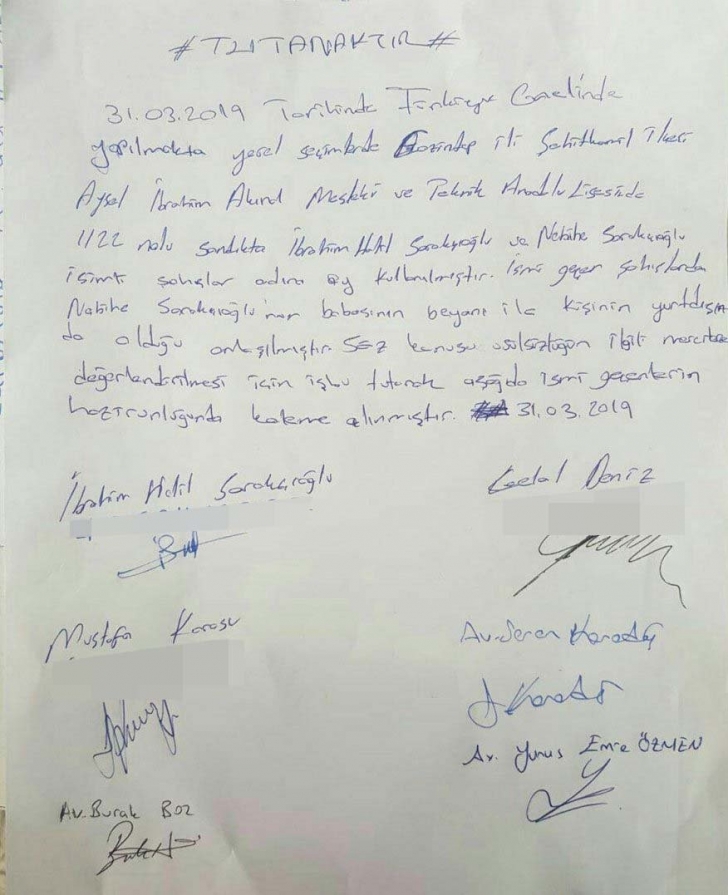 #TUTANAKTIR#
31.03.2019 Tarihinde Türkiye Genelinde
yapılmakta yerel seçimlerde Gaziantep ili Şehitkamil ilçesi
Aysel İbrahim Akınal Mesleki ve Teknik Anadolu Lisesinde
1122 nolu sandıkta İbrahim Halil Sarakçıoğlu ve Nebihe Sarakçıoğlu
isimli şahıslar adına oy kullanılmıştır. İsmi geçen şahıslardan
Nebihe Sarakçıoğlu'nun babasının beyanı ile kişinin yurtdışın
da olduğu anlaşılmıştır. Söz konusu usulsüzlüğün ilgili mercilerce
değerlendirilmesi için işbu tutanak aşağıda ismi geçenlerin
hazirunluğunda kaleme alınmıştır. 31.03.2019
İbrahim Halil Sarakçıoğlu
Deniz
Mustafa Karasu
Av. Karadağ
Av. Yunus Emre ÖZMEN
Av. Burak BOZ